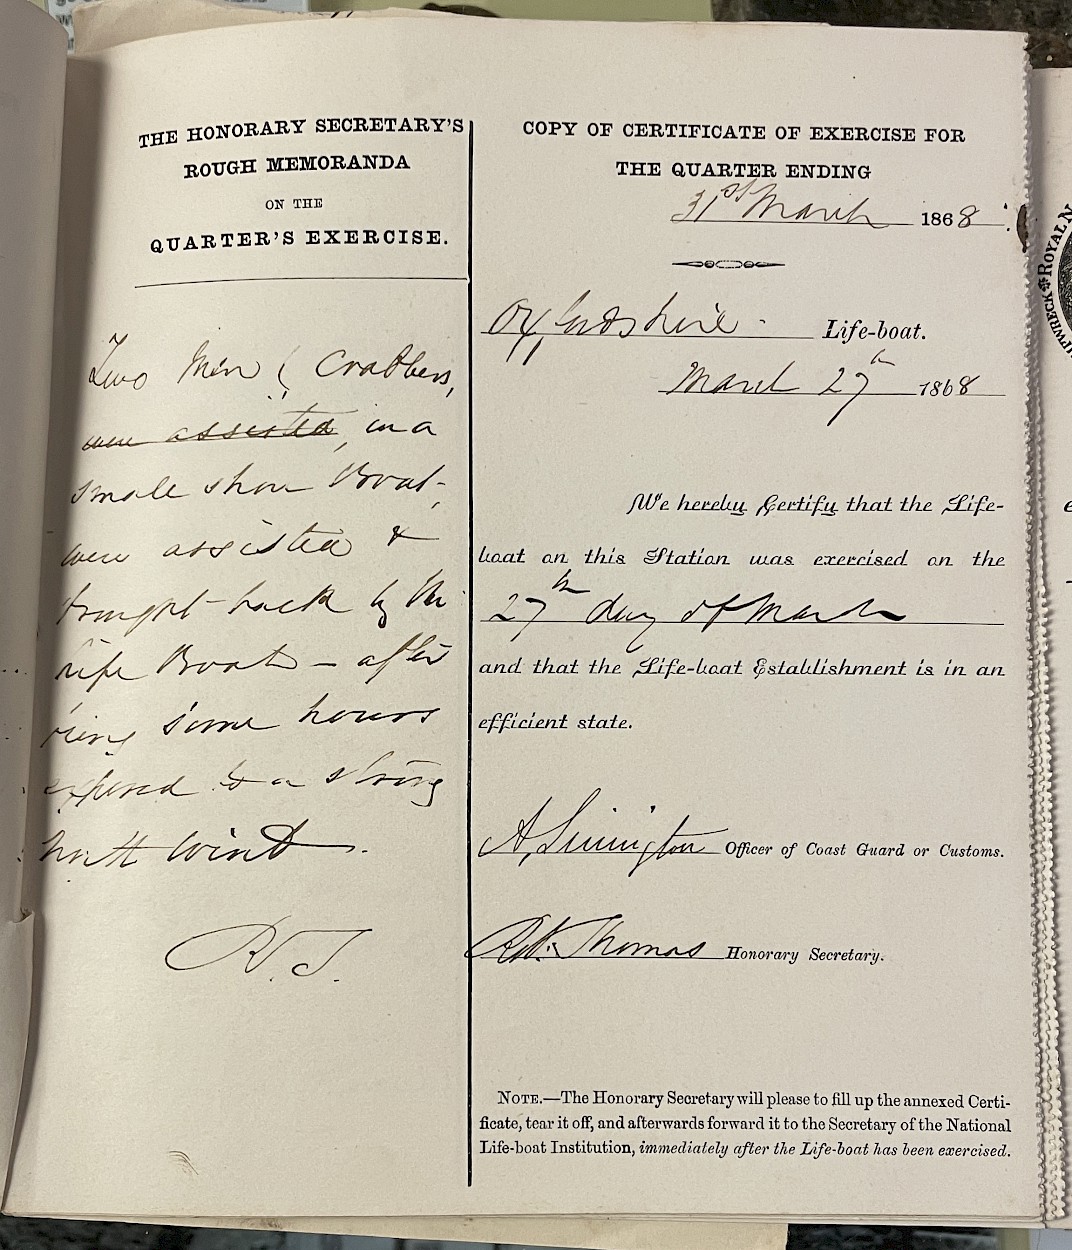 THE HONORARY SECRETARY'S
ROUGH MEMORANDA
ON THE
QUARTER'S EXERCISE.
Two Men (Crabbers,
were assisted, in a
small shore Boat,
were assisted &
brought back by the
Life Boat – after
being some hours
exposed to a strong
North Wind.
R.T.
COPY OF CERTIFICATE OF EXERCISE FOR
THE QUARTER ENDING
31st March 1868.
Oxfordshire. Life-boat.
March 27th 1868
We hereby Certify that the Life-
boat on this Station was exercised on the
27th day of March
and that the Life-boat Establishment is in an
efficient state.
A. Officer of Coast Guard or Customs.
Robt. Thomas Honorary Secretary.
NOTE.—The Honorary Secretary will please to fill up the annexed Certi-
ficate, tear it off, and afterwards forward it to the Secretary of the National
Life-boat Institution, immediately after the Life-boat has been exercised.
ROYAL N
PWRECK